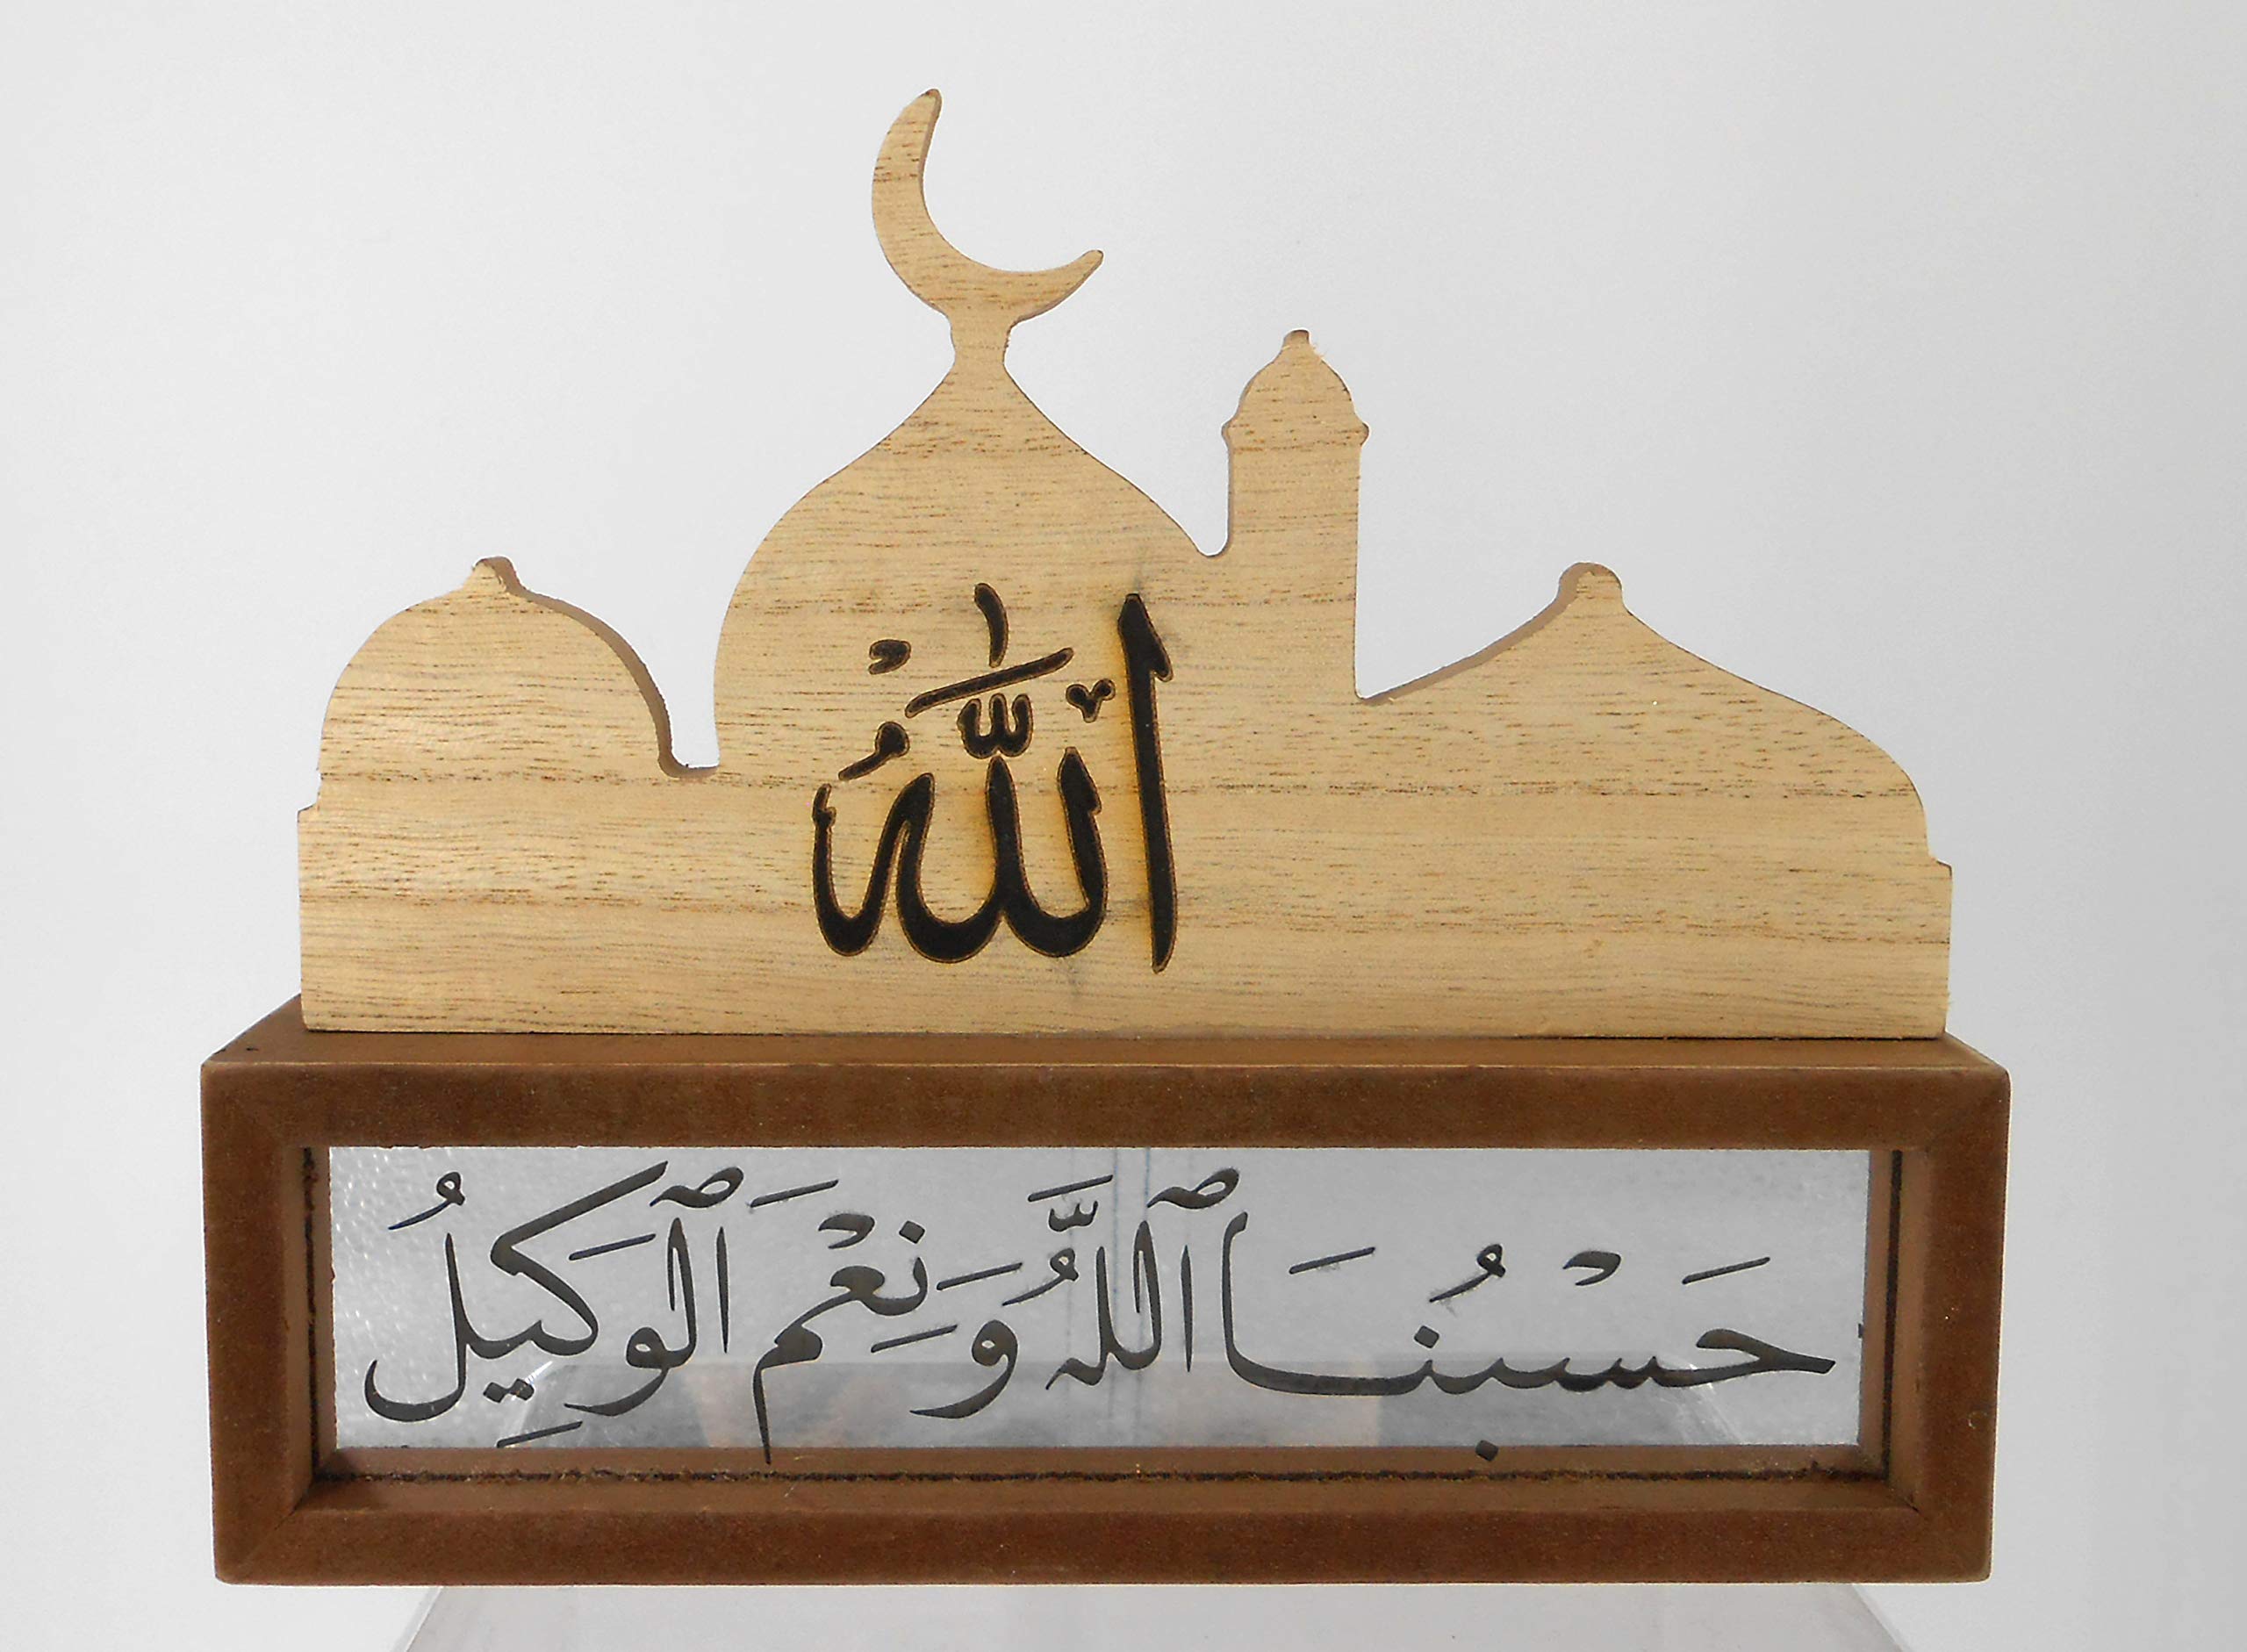 اللَّهُ
حَسْبُنَا ٱللَّهُ وَنِعْمَ ٱلْوَكِيلُ